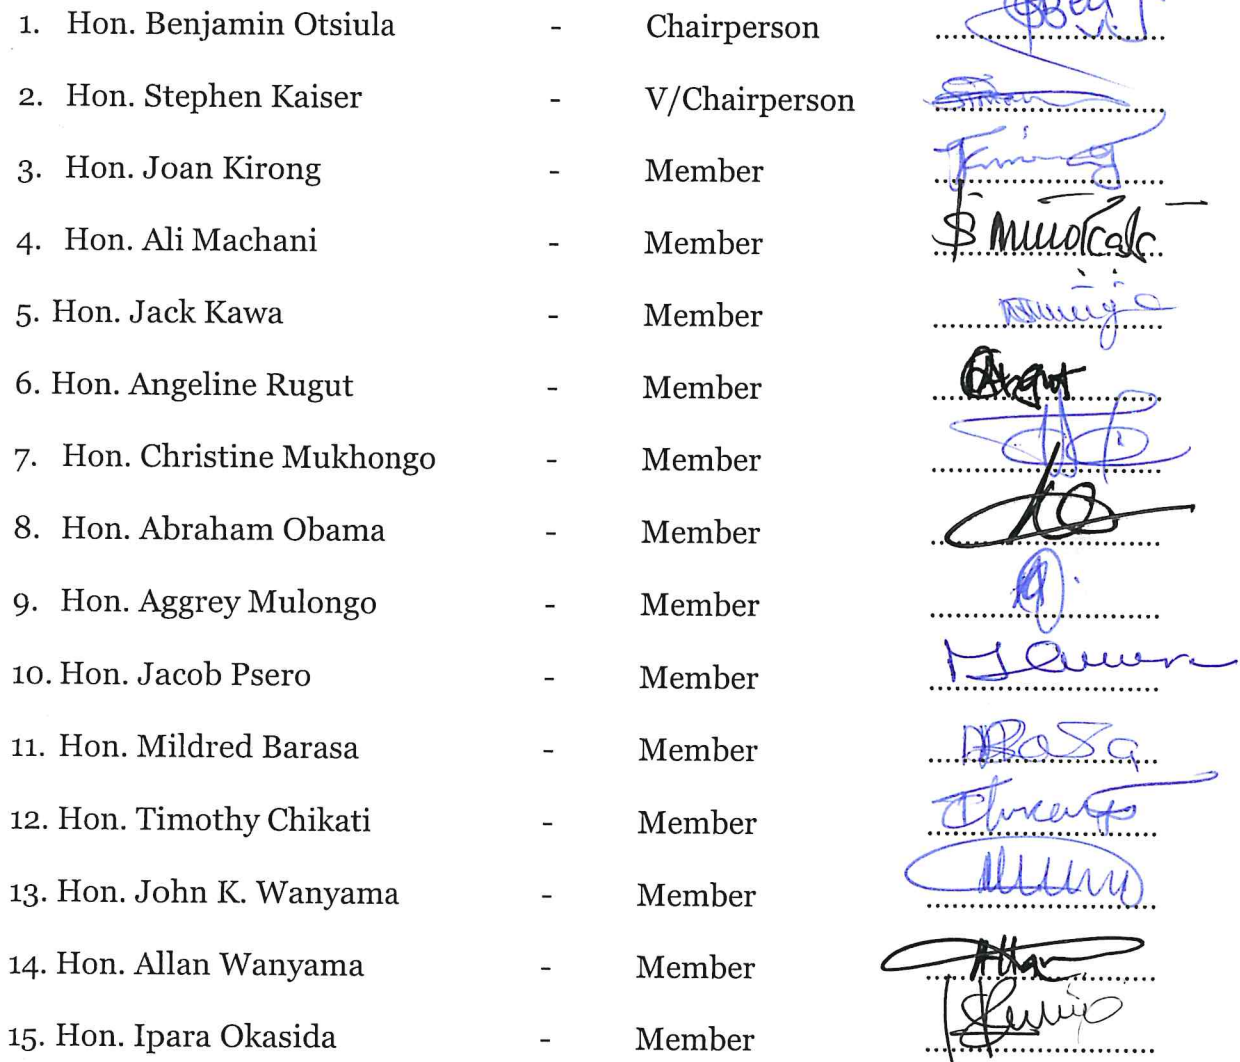 1. Hon. Benjamin Otsiula - Chairperson
2. Hon. Stephen Kaiser - V/Chairperson
3. Hon. Joan Kirong - Member
4. Hon. Ali Machani - Member
5. Hon. Jack Kawa - Member
6. Hon. Angeline Rugut - Member
7. Hon. Christine Mukhongo - Member
8. Hon. Abraham Obama - Member
9. Hon. Aggrey Mulongo - Member
10. Hon. Jacob Psero - Member
11. Hon. Mildred Barasa - Member
12. Hon. Timothy Chikati - Member
13. Hon. John K. Wanyama - Member
14. Hon. Allan Wanyama - Member
15. Hon. Ipara Okasida - Member